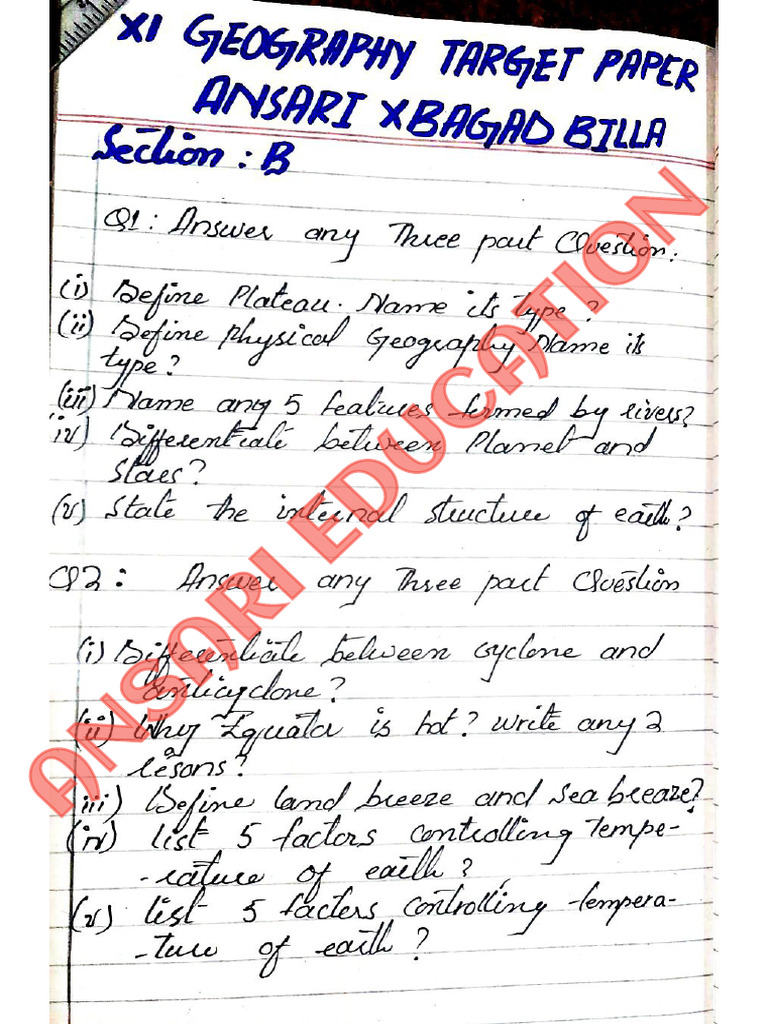 XI GEOGRAPHY TARGET PAPER
ANSARI X BAGAD BILLA
Section : B
Q1 : Answer any Three part Question :
(i) Define Plateau. Name its type ?
(ii) Define Physical Geography Name its
type ?
(iii) Name any 5 features formed by rivers?
iv) Differentiate between Planet and
Staes ?
(v) State the internal structure of earth ?
Q2 : Answer any Three part Question
(i) Differentiate between cyclone and
anticyclone ?
(ii) Why Equator is hot ? write any 2
resons ?
iii) Define land breeze and sea breaze?
(iv) list 5 factors controlling tempe-
-rature of earth ?
(v) list 5 factors controlling tempera-
-ture of earth ?
ANSARI EDUCATION